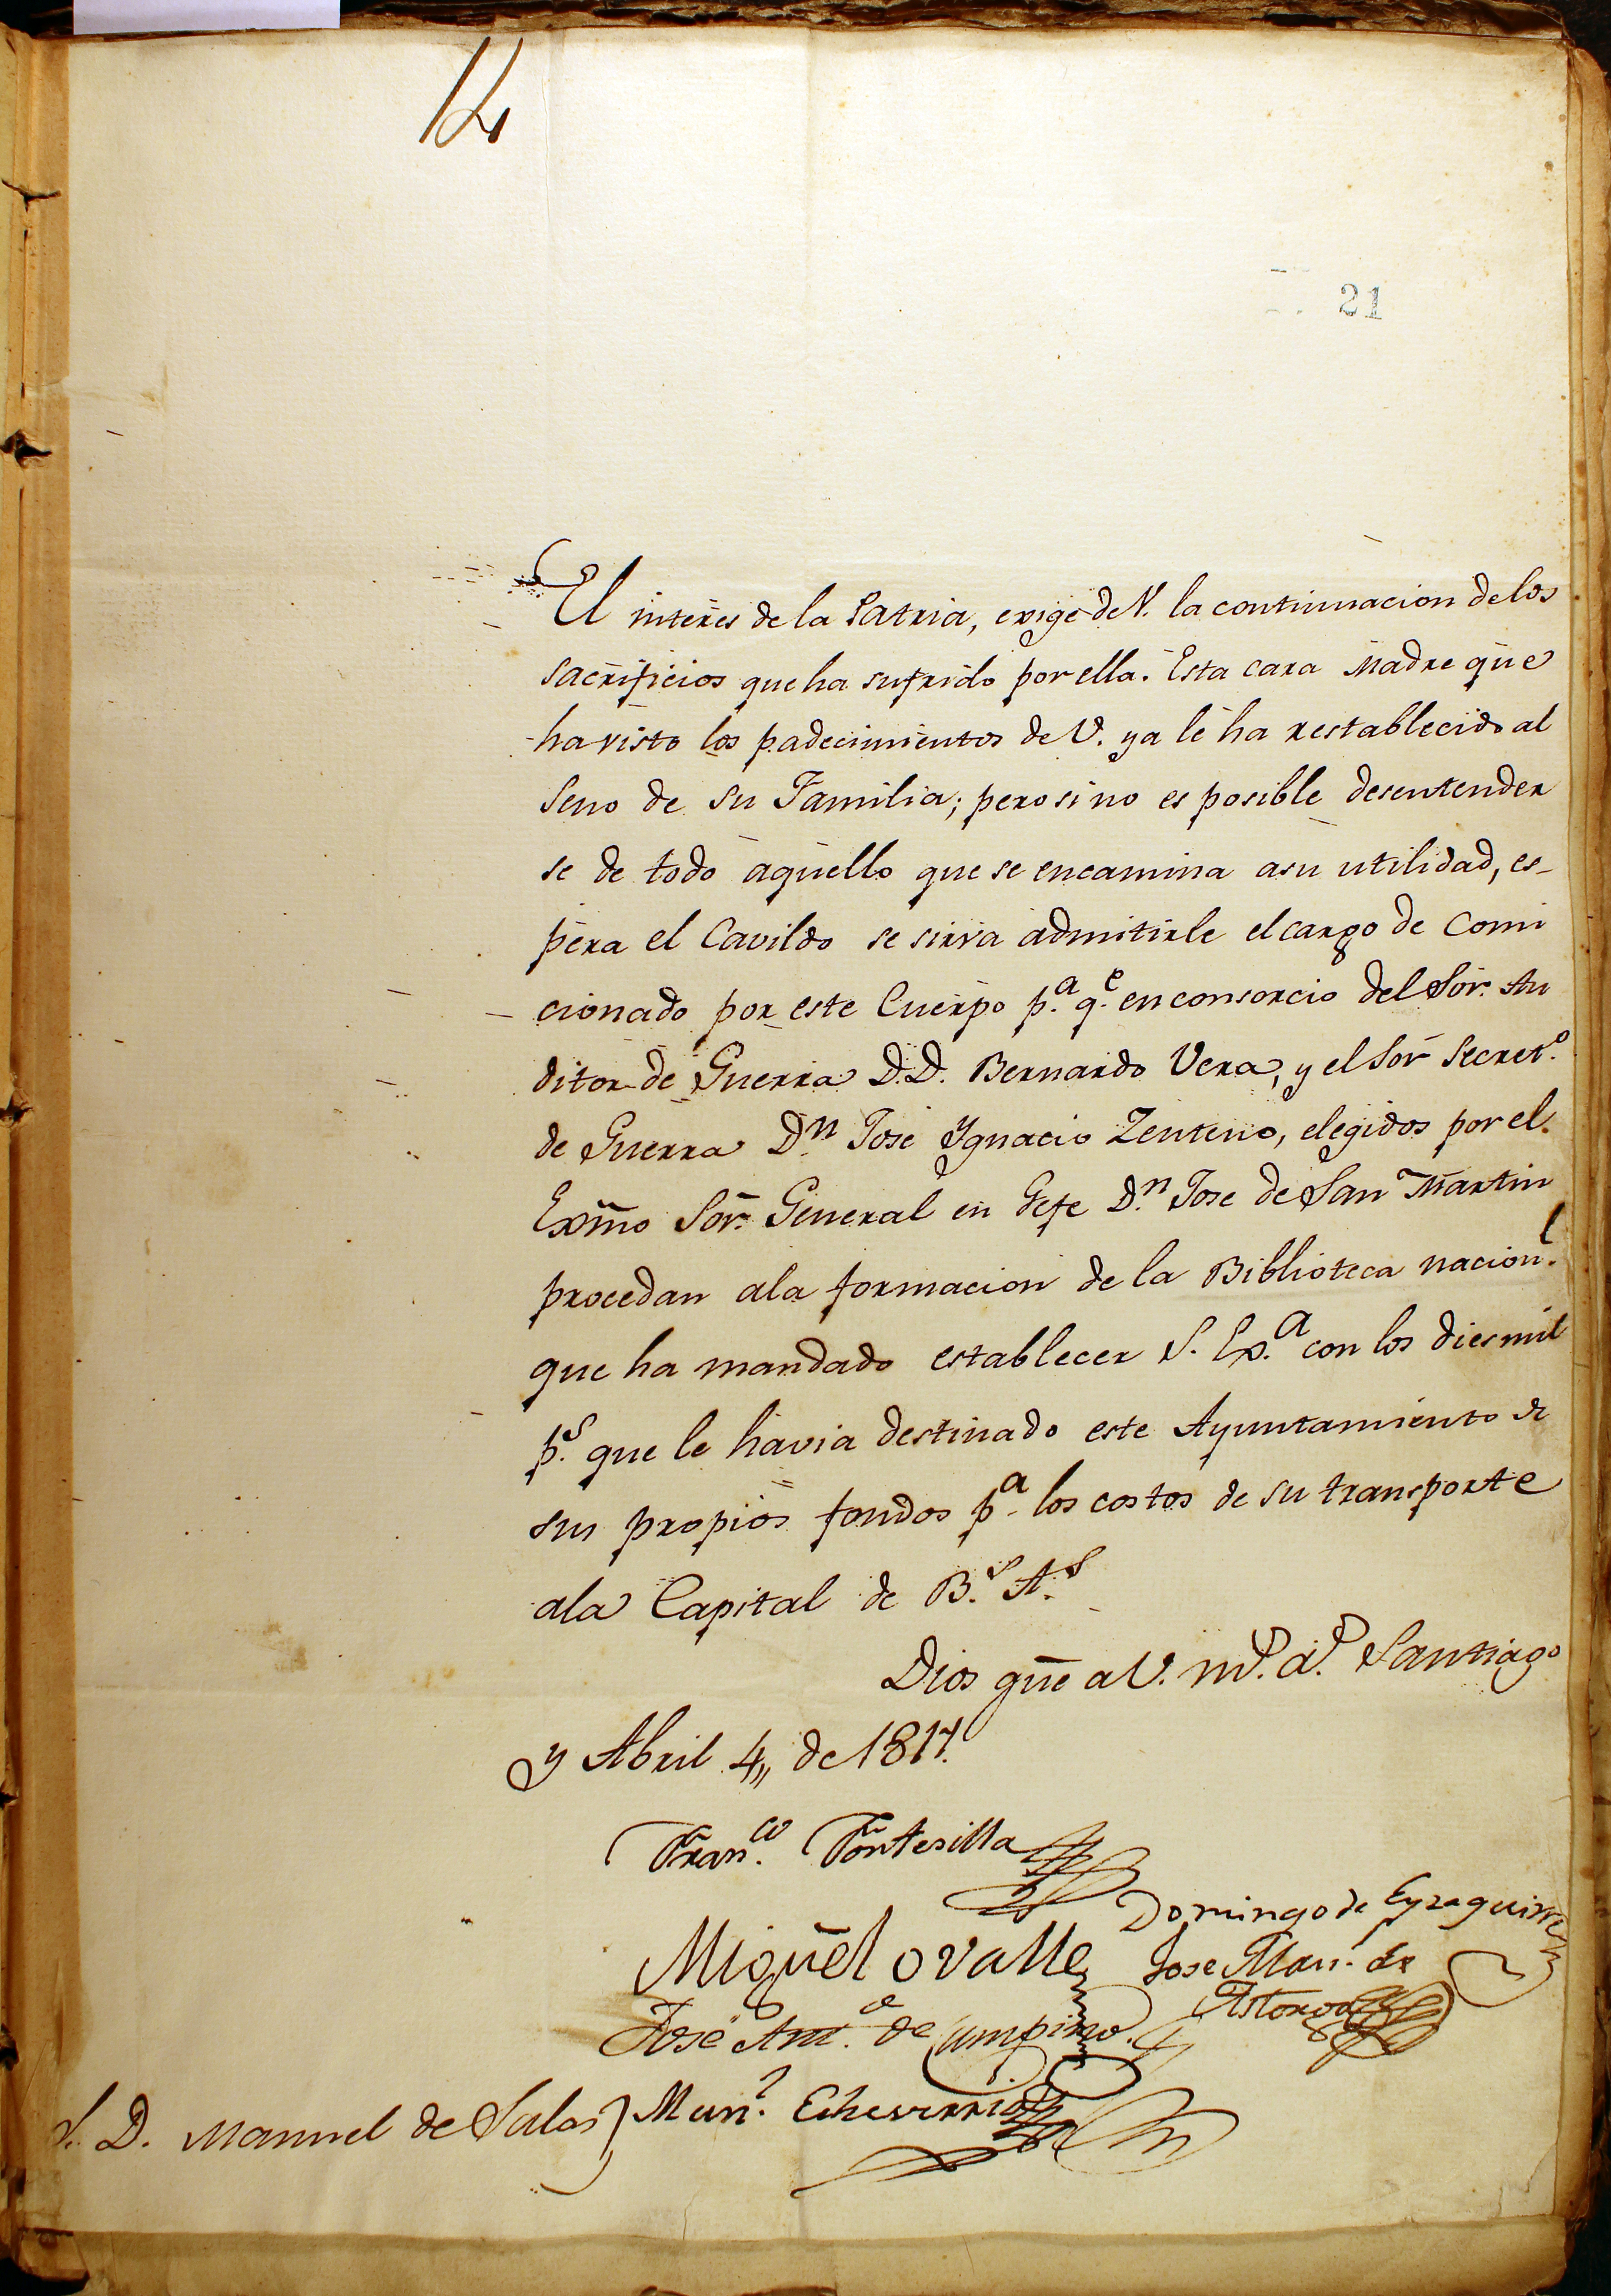 12
21
El interes de la Patria, exige de V. la continuacion de los
sacrificios que ha sufrido por ella. Esta cara Madre que
ha visto los padecimientos de V. ya le ha restablecido al
seno de su Familia; pero si no es posible desentender
se de todo aquello que se encamina a su utilidad, es-
pera el Cavildo se sirva admitirle el cargo de Comi
cionado por este Cuerpo p.ª q.e en consorcio del Sór. Au
ditor de Guerra D.D. Bernardo Vera, y el Sór Secret.º
de Guerra D.n José Ygnacio Zenteno, elegidos por el
Exmo Sór. General en Gefe D.n Jose de San Martin
procedan ala formacion de la Biblioteca nacion.l
que ha mandado establecer S. Ex.ª con los dies mil
p.s que le havia destinado este Ayuntamiento de
sus propios fondos p.ª los costos de su transporte
ala Capital de B.s A.s
Dios gũe a V. m.s a.s Santiago
y Abril 4,, de 1817.
Fran.co Fontesilla
Domingo de Eyzaguirre
Miguel Ovalle
Jose Man. de
Astorga
José Ant.º de Campino.
Man.l Echeverria
S. D. Manuel de Salas